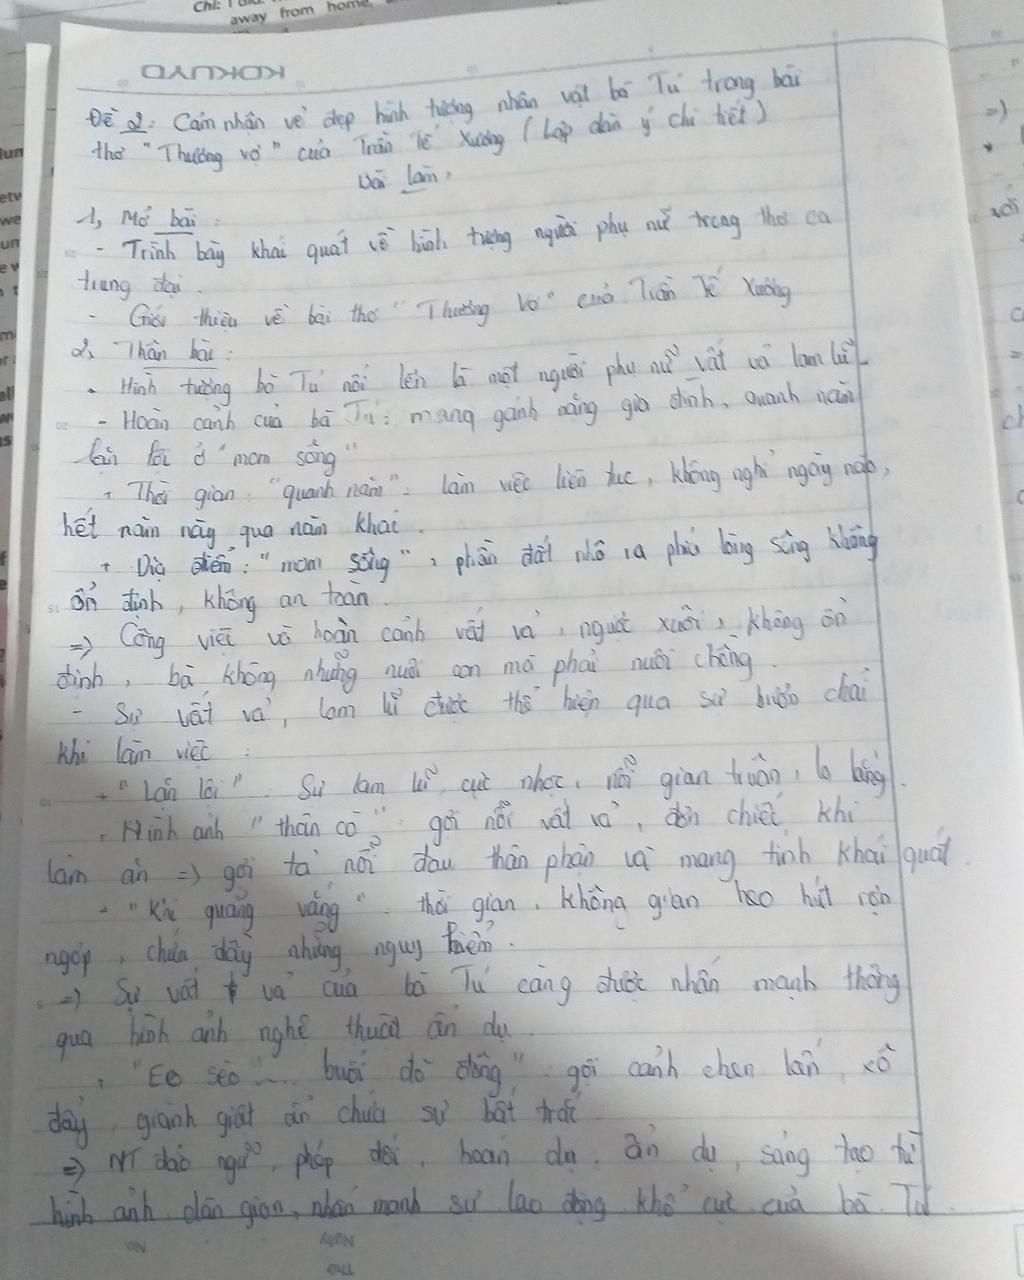 Chi: I did.
away from home,
KOKUYO
Đề 2: Cảm nhận vẻ đẹp hình tượng nhân vật bà Tú trong bài
thơ "Thương vợ" của Trần Tế Xương (Lập dàn ý chi tiết)
Bài làm:
1, Mở bài:
- Trình bày khái quát về hình tượng người phụ nữ trong thơ ca
trung đại.
- Giới thiệu về bài thơ "Thương Vợ" của Trần Tế Xương
2, Thân bài:
• Hình tượng bà Tú nổi lên là một người phụ nữ vất vả lam lũ
- Hoàn cảnh của bà Tú: mang gánh nặng gia đình, quanh năm
lặn lội ở "mom sông"
+ Thời gian: "quanh năm": làm việc liên tục, không nghỉ ngày nào,
hết năm này qua năm khác.
+ Địa điểm: "mom sông": phần đất nhô ra phía lòng sông không
ổn định, không an toàn.
=> Công việc và hoàn cảnh vất vả, ngược xuôi, không ổn
định, bà không những nuôi con mà phải nuôi chồng.
- Sự vất vả, lam lũ được thể hiện qua sự bươn chải
khi làm việc:
+ "Lặn lội": Sự lam lũ, cực nhọc, nỗi gian truân, lo lắng.
+ Hình ảnh "thân cò": gợi nỗi vất vả, đơn chiếc khi
làm ăn => gợi tả nỗi đau thân phận và mang tính khái quát.
+ "Khi quãng vắng": thời gian, không gian heo hút rợn
ngợp, chứa đầy những nguy hiểm.
=> Sự vất vả của bà Tú càng được nhấn mạnh thông
qua hình ảnh nghệ thuật ẩn dụ.
+ "Eo sèo .... buổi đò đông": gợi cảnh chen lấn, xô
đẩy, giành giật ẩn chứa sự bất trắc
=> NT đảo ngữ, phép đối, hoán dụ, ẩn dụ, sáng tạo từ
hình ảnh dân gian, nhấn mạnh sự lao động khổ cực của bà Tú
No
Ngày
Thứ